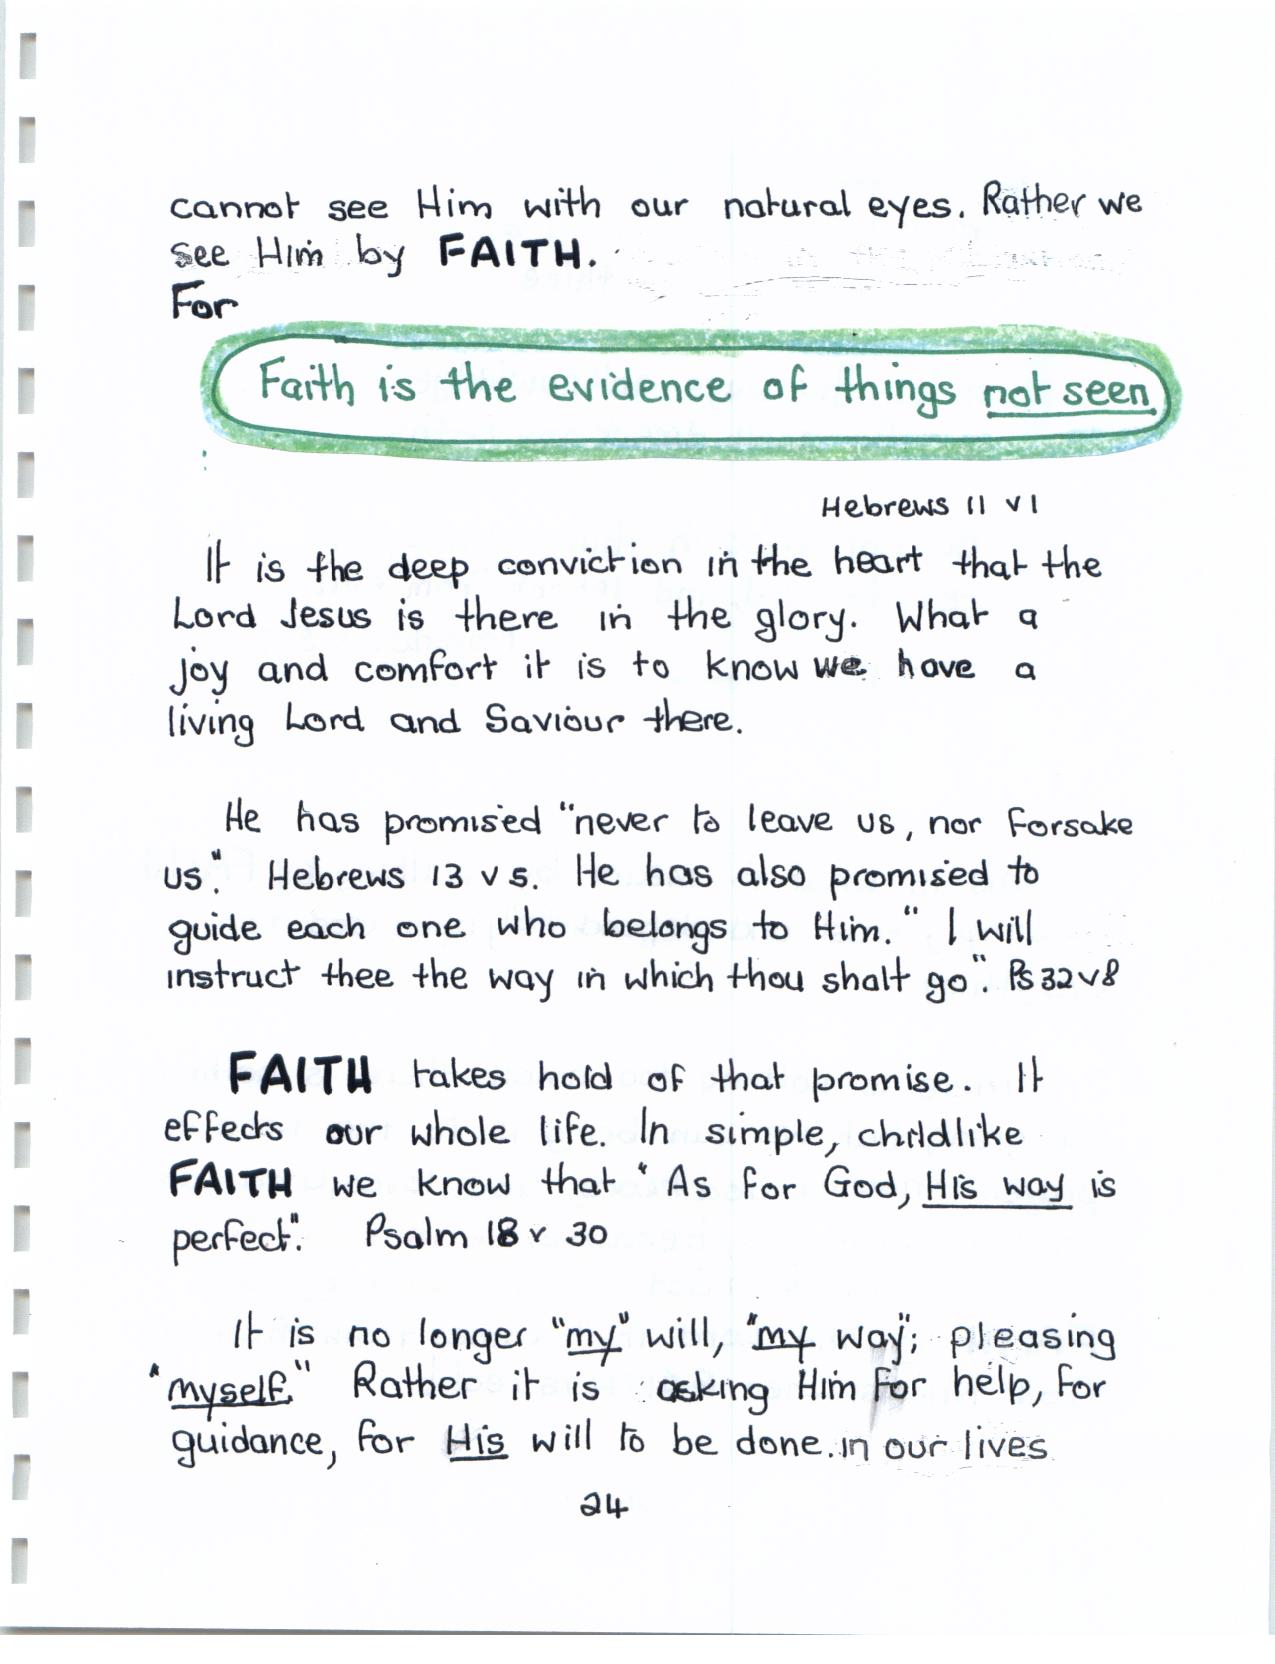 cannot see Him with our natural eyes. Rather we
see Him by FAITH.
For
Faith is the evidence of things not seen
Hebrews 11 v1
It is the deep conviction in the heart that the
Lord Jesus is there in the glory. What a
joy and comfort it is to know we have a
living Lord and Saviour there.
He has promised "never to leave us, nor forsake
us". Hebrews 13 v 5. He has also promised to
guide each one who belongs to Him. " I will
instruct thee the way in which thou shalt go". Ps 32 v 8
FAITH takes hold of that promise. It
effects our whole life. In simple, childlike
FAITH we know that " As for God, His way is
perfect". Psalm 18 v 30
It is no longer "my" will, "my way"; pleasing
"myself." Rather it is asking Him for help, for
guidance, for His will to be done. in our lives
24